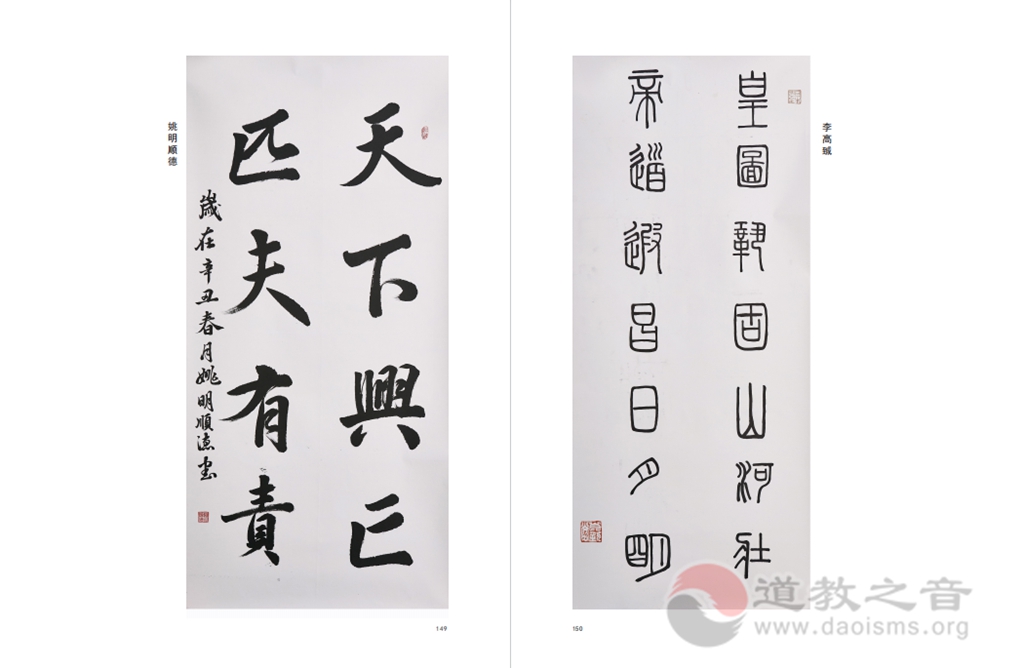 姚明順德
天下興亡
匹夫有責
歲在辛丑春月姚明順德書
149
李高
皇圖鞏固山河壯
帝道遐昌日月明
150
道教之音
www.daoisms.org